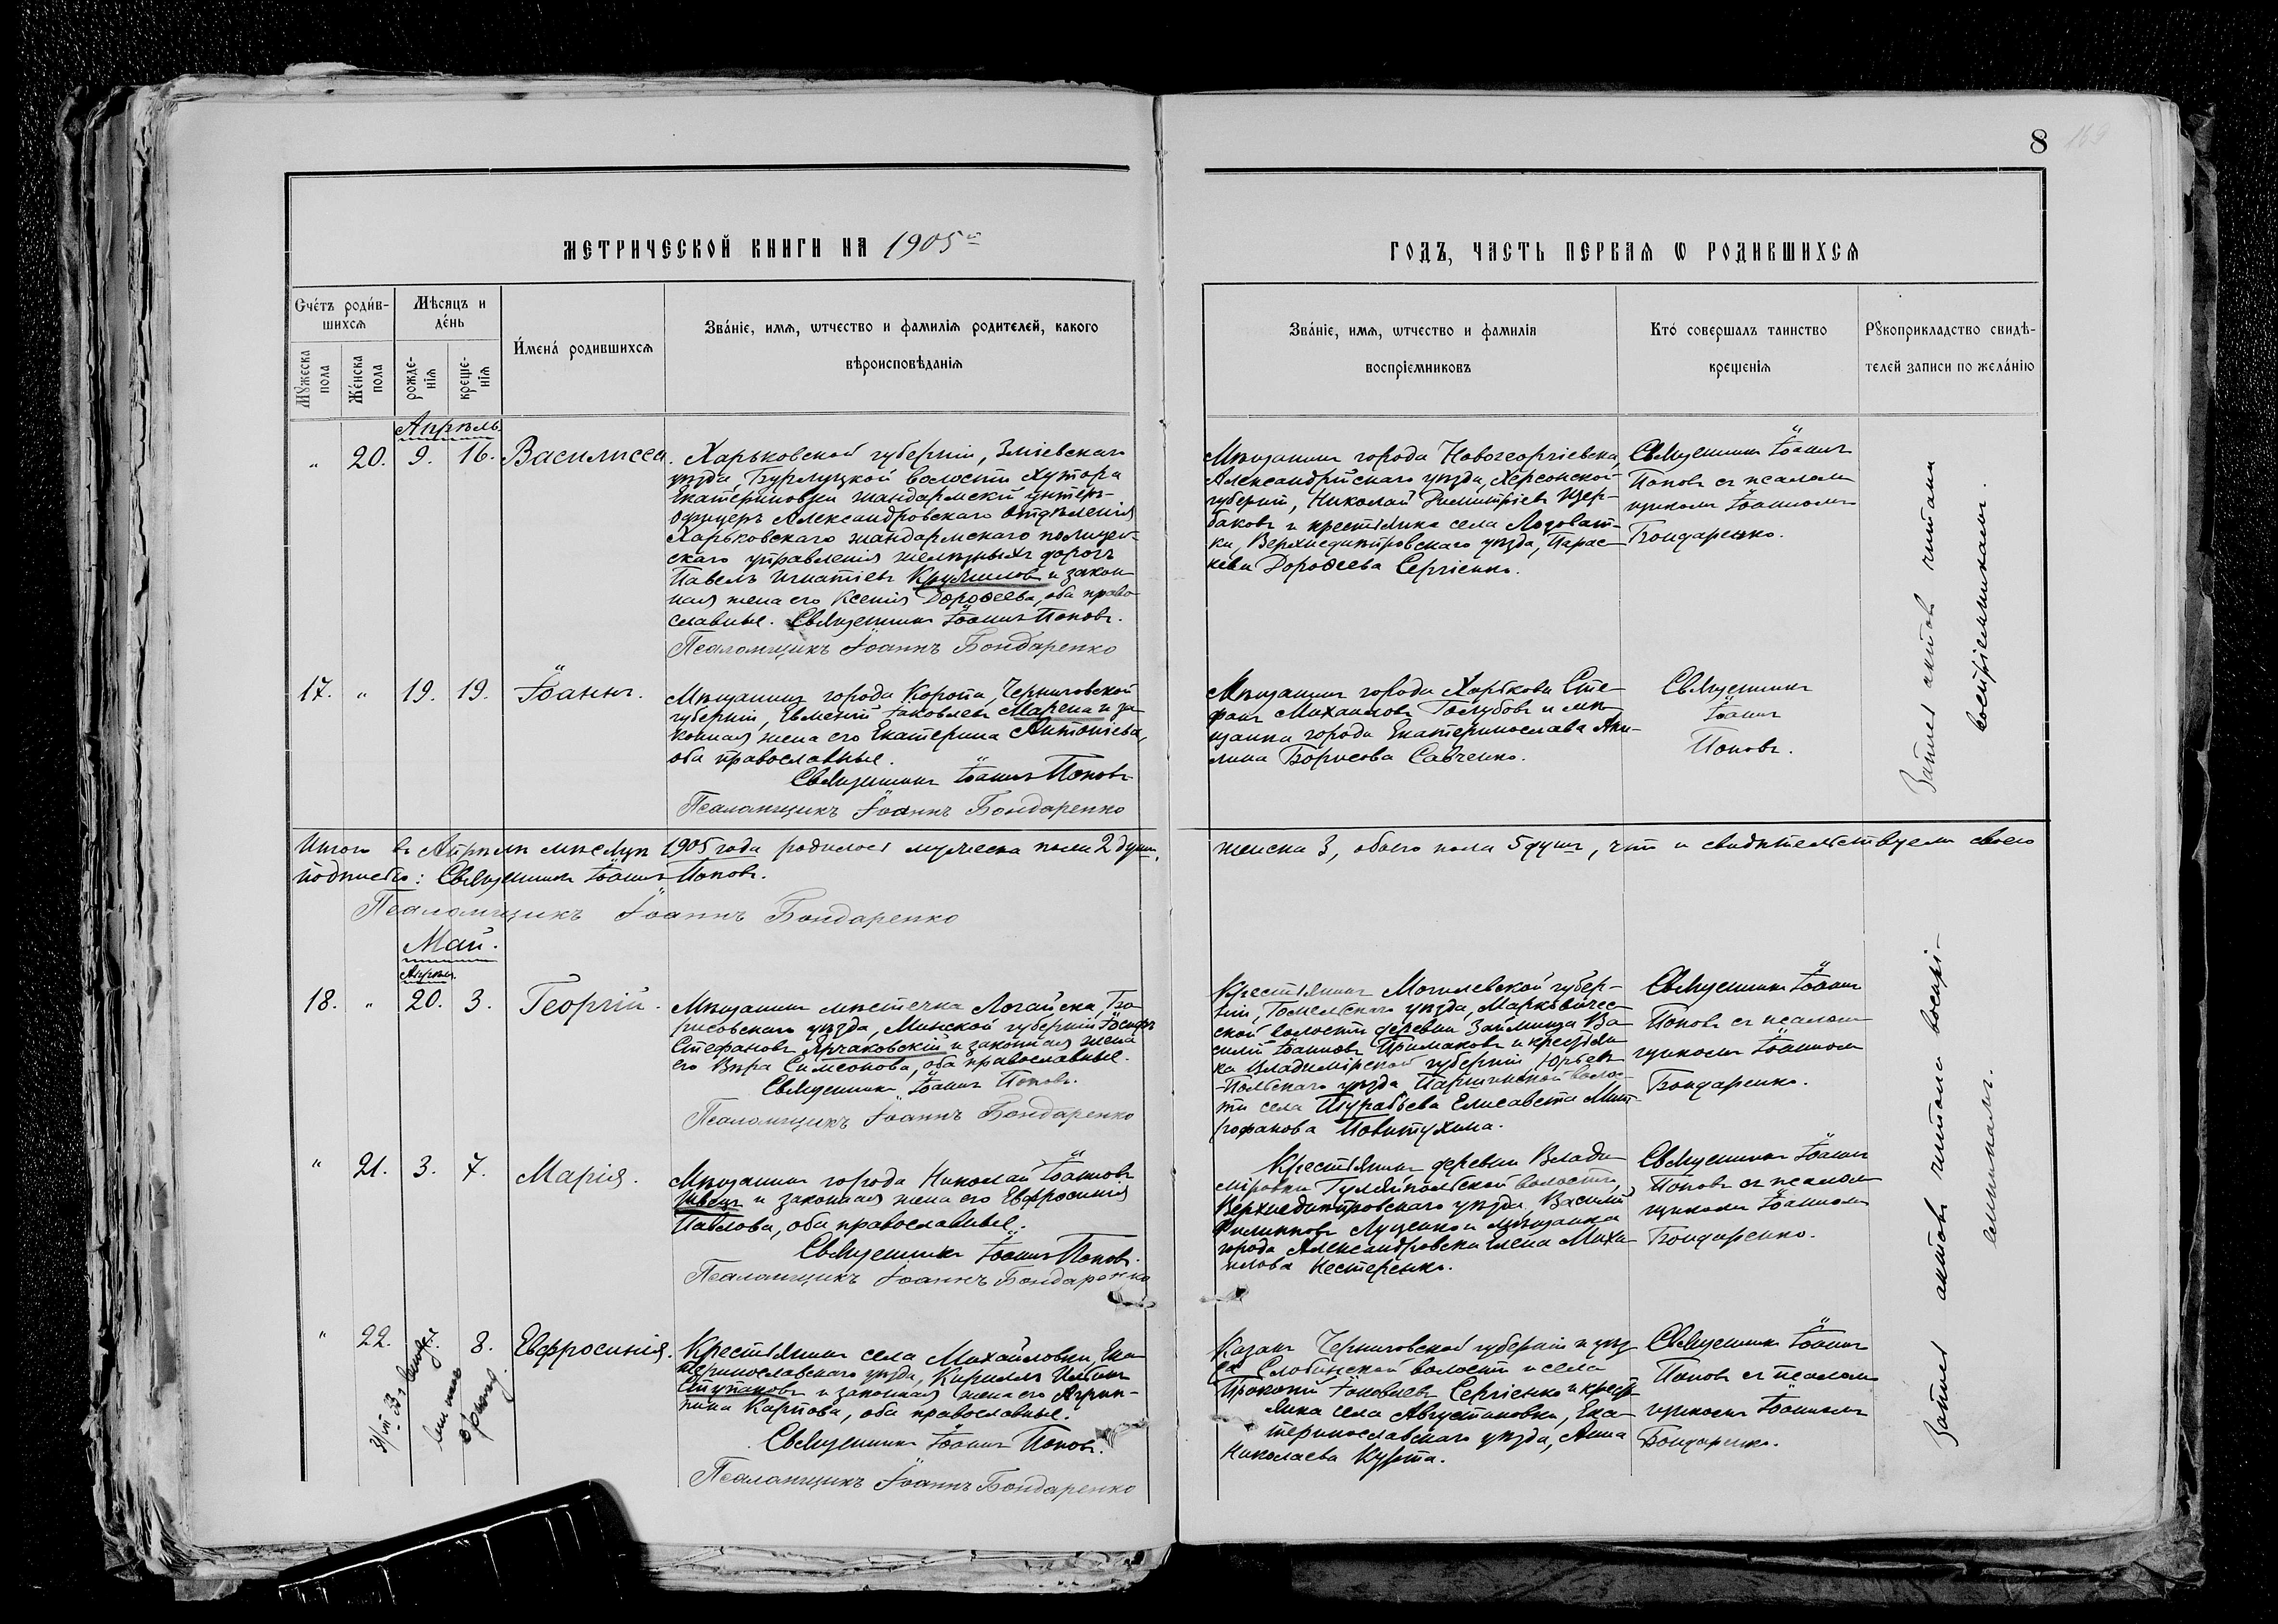 8
МЕТРИЧЕСКОЙ КНИГИ НА 1905й
ГОДЪ, ЧАСТЬ ПЕРВАЯ Ѡ РОДИВШИХСЯ
Счéтъ роди́в-
шихся
Мѣсяцъ и
дéнь
И́мена́ родившихся
Звáніе, имя, ѡтчество и фамилія родителей, какого
вѣроисповѣданія
Мужеска
пола
Жéнска
пола
рожде-
нія
креще-
нія
Звáніе, имя, ѡтчество и фамилія
воспріемниковъ
Ктó совершалъ таинство
крещенія
Рꙋкоприкладство свидѣ-
телей записи по желáнію
Апрѣль
" 20. 9. 16. Василисса.
Харьковской губерніи, Зміевскаго
уѣзда, Бурлуцкой волости хутора
Екатериновки жандармскій унтеръ-
офицеръ Александровскаго Отдѣленія
Харьковскаго жандармскаго полицей-
скаго управленія желѣзныхъ дорогъ
Павелъ Игнатіевъ и закон-
ная жена его Ксенія Дороѳеева, оба право-
славные. Священникъ Іоаннъ Поповъ.
Псаломщикъ Іоаннъ Бондаренко
Мѣщанинъ города Новогеоргіевска,
Александрійскаго уѣзда, Херсонской
губерніи, Николай Димитріевъ Щер-
баковъ и крестьянка села Лозоват-
ки, Верхнеднѣпровскаго уѣзда, Парас-
кева Дороѳеева Сергіенко.
Священникъ Іоаннъ
Поповъ съ псалом-
щикомъ Іоанномъ
Бондаренко.
17. " 19. 19. Іоаннъ.
Мѣщанинъ города Коропа, Черниговской
губерніи, Евменій Іаковлевъ Марена и за-
конная жена его Екатерина Антоніева,
оба православные.
Священникъ Іоаннъ Поповъ
Псаломщикъ Іоаннъ Бондаренко
Мѣщанинъ города Харькова Сте-
фанъ Михаиловъ Голубовъ и мѣ-
щанка города Екатеринослава Аки-
лина Борисова Савченко.
Священникъ
Іоаннъ
Поповъ.
Итого въ Апрѣлѣ мѣсяцѣ 1905 года родилось мужеска пола 2 души,
женска 3, обоего пола 5 душъ, что и свидѣтельствуемъ своею
подписью: Священникъ Іоаннъ Поповъ.
Псаломщикъ Іоаннъ Бондаренко
Май.
Апрѣл.
18. " 20. 3. Георгій.
Мѣщанинъ мѣстечка Логайска, Бо-
рисовскаго уѣзда, Минской губерніи Іосифъ
Стефановъ Ярчаковскій и законная жена
его Вѣра Симеонова, оба православные.
Священникъ Іоаннъ Поповъ.
Псаломщикъ Іоаннъ Бондаренко
Крестьянинъ Могилевской губер-
ніи, Гомельскаго уѣзда, Марковичес-
кой волости деревни Займища Ва-
силій Іоанновъ Примаковъ и крестьян-
ка Владимірской губерніи Юрьев-
-Польскаго уѣзда Паршинской волос-
ти села Шурабьева Елисавета Мит-
рофанова Повитухина.
Священникъ Іоаннъ
Поповъ съ псалом-
щикомъ Іоанномъ
Бондаренко.
" 21. 3. 7. Марія.
Мѣщанинъ города Николай Іоанновъ
Швецъ и законная жена его Евфросинія
Павлова, оба православные.
Священникъ Іоаннъ Поповъ.
Псаломщикъ Іоаннъ Бондаренко
Крестьянинъ деревни Влади-
міровки Гуляйпольской волости,
Верхнеднѣпровскаго уѣзда, Василій
Филипповъ Луценко и мѣщанка
города Александровска Елена Миха-
илова Нестеренко.
Священникъ Іоаннъ
Поповъ съ псалом-
щикомъ Іоанномъ
Бондаренко.
" 22. 8. Евфросинія.
Крестьянинъ села Михайловки, Ека-
теринославскаго уѣзда, Кириллъ
Ступаковъ и законная жена его Агрип-
пина Карпова, оба православные.
Священникъ Іоаннъ Поповъ.
Псаломщикъ Іоаннъ Бондаренко
Казакъ Черниговской губерніи и уѣз-
да Слабинской волости и села
Прокопій Іаковлевъ Сергіенко и крест-
янка села Августиновки, Ека-
теринославскаго уѣзда, Анна
Николаева Курта.
Священникъ Іоаннъ
Поповъ съ псалом-
щикомъ Іоанномъ
Бондаренко.
Запись актовъ читали
воспріемникамъ.
Запись актовъ читана воспрі-
емникамъ.